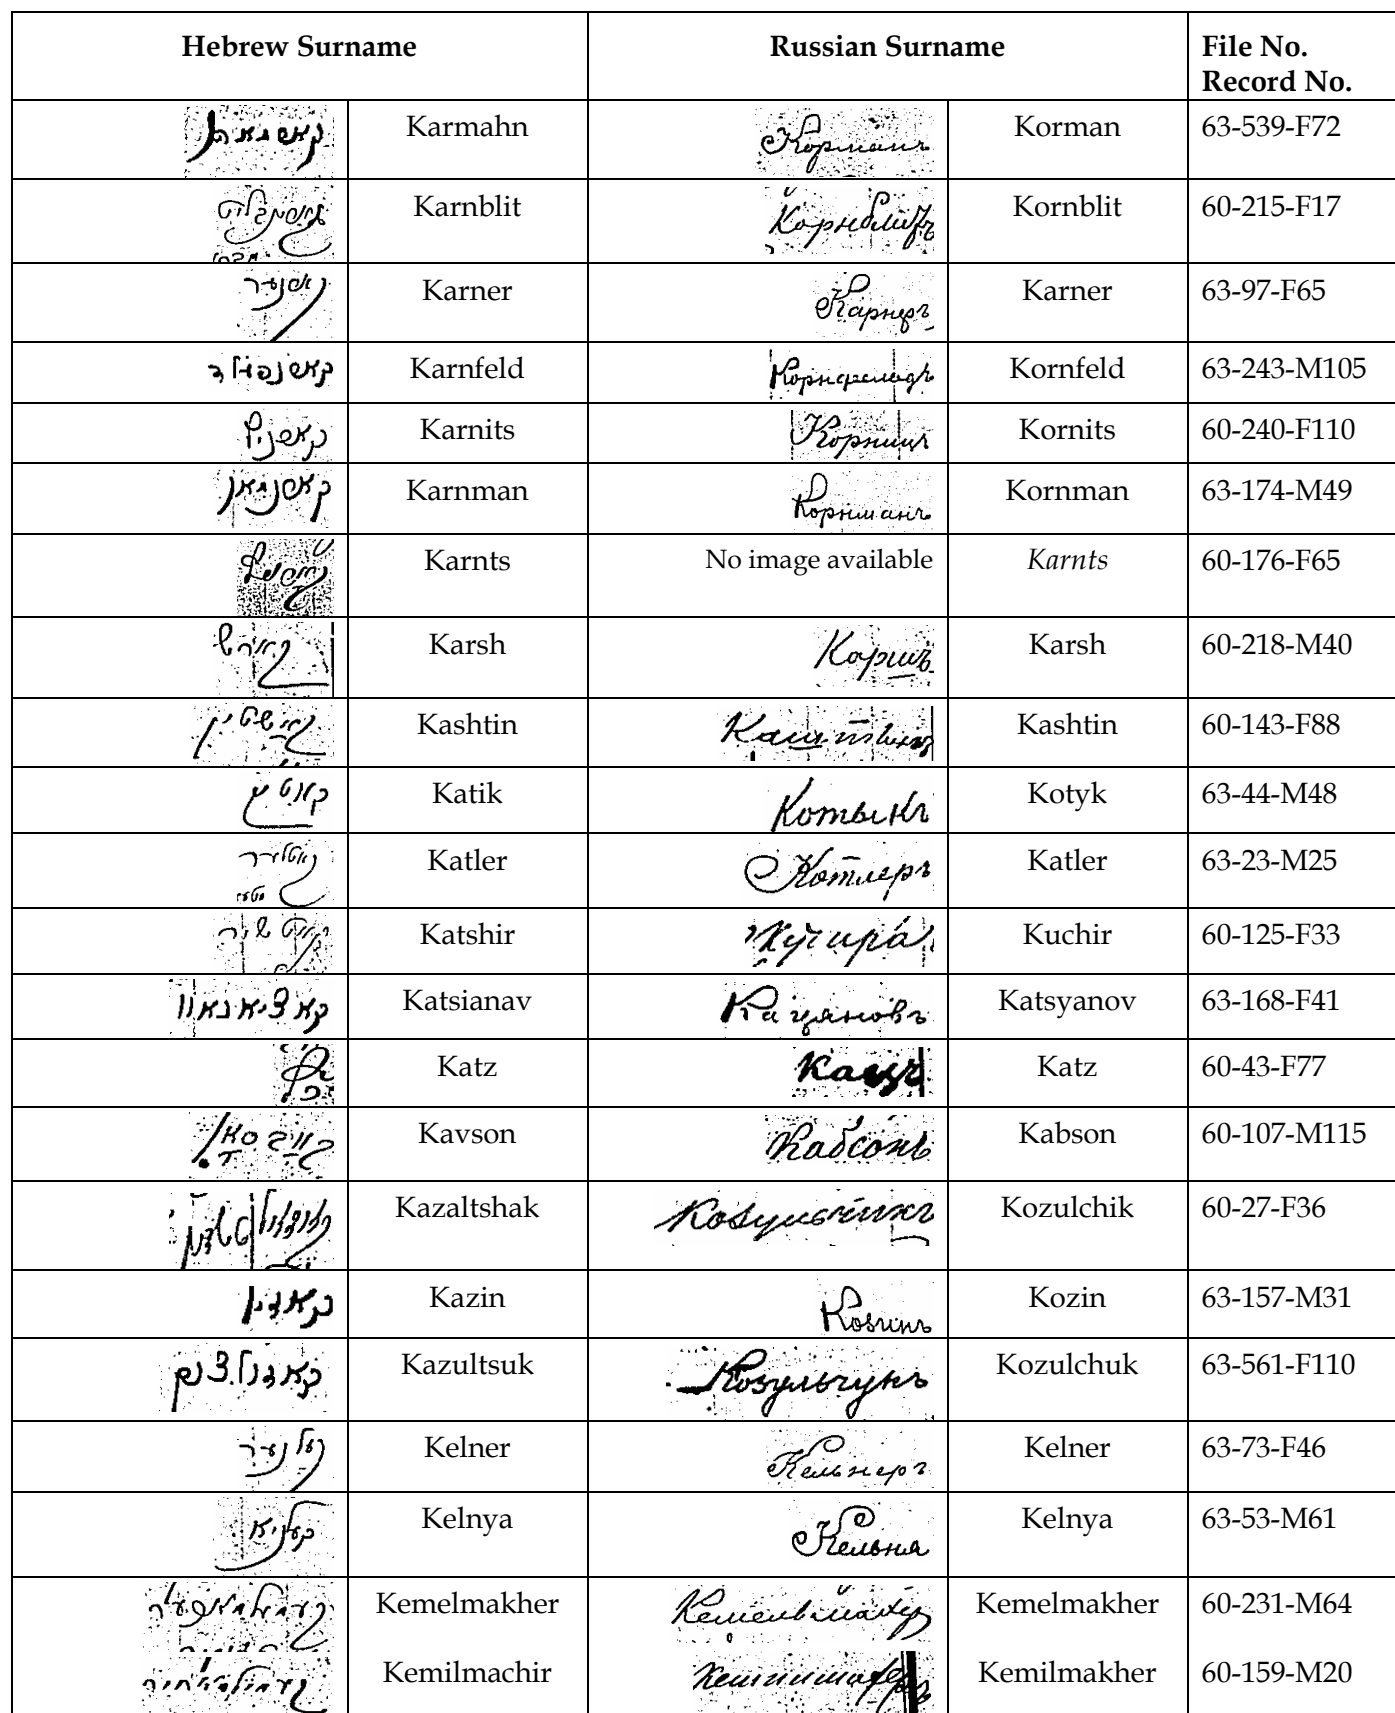 Hebrew Surname Russian Surname File No.
Record No.
קארמאהן Karmahn Корманъ Korman 63-539-F72
Karnblit Корнблитъ Kornblit 60-215-F17
קארנער Karner Карнеръ Karner 63-97-F65
קארנפעלד Karnfeld Корнфельдъ Kornfeld 63-243-M105
קארניץ Karnits Корницъ Kornits 60-240-F110
קארנמאן Karnman Корнманъ Kornman 63-174-M49
Karnts No image available Karnts 60-176-F65
Karsh Коршъ Karsh 60-218-M40
קאשטין Kashtin Каштинъ Kashtin 60-143-F88
Katik Котыкъ Kotyk 63-44-M48
קאטליר Katler Котлеръ Katler 63-23-M25
קאטשיר Katshir Кучира Kuchir 60-125-F33
קאציאנאוו Katsianav Кацяновъ Katsyanov 63-168-F41
כץ Katz Кацъ Katz 60-43-F77
Kavson Кабсонъ Kabson 60-107-M115
Kazaltshak Козульчикъ Kozulchik 60-27-F36
קאזין Kazin Козинъ Kozin 63-157-M31
קאזולצוק Kazultsuk Козульчукъ Kozulchuk 63-561-F110
קעלנער Kelner Кельнеръ Kelner 63-73-F46
קעלניא Kelnya Кельня Kelnya 63-53-M61
קעמעלמאכער Kemelmakher Кемельмахеръ Kemelmakher 60-231-M64
Kemilmachir Kemilmakher 60-159-M20